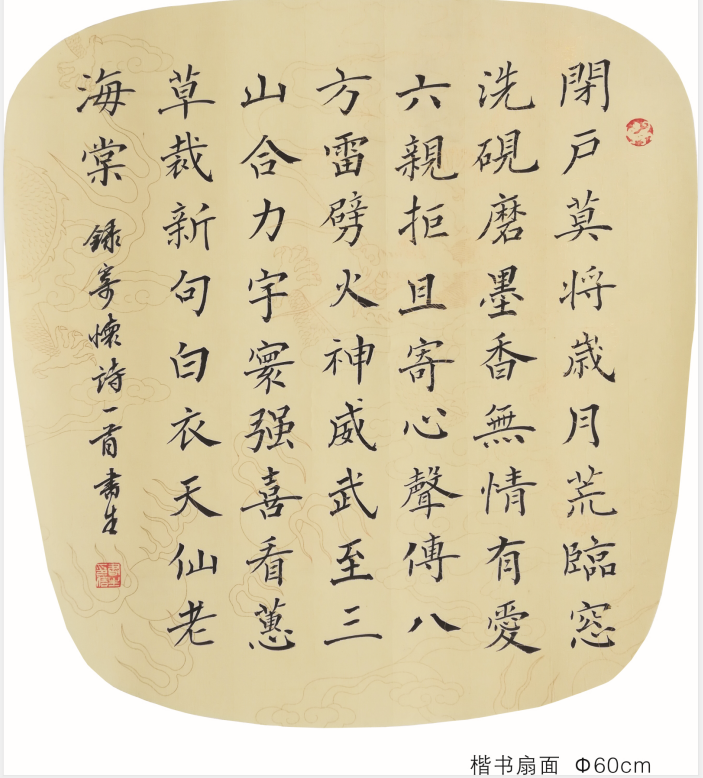 閉戸莫将歳月荒臨窓
洗硯磨墨香無情有愛
六親拒且寄心聲傳八
方雷劈火神威武至三
山合力宇寰强喜看蕙
草裁新句白衣天仙老
海棠
録寄懐詩一首书生
楷书扇面 Φ60cm